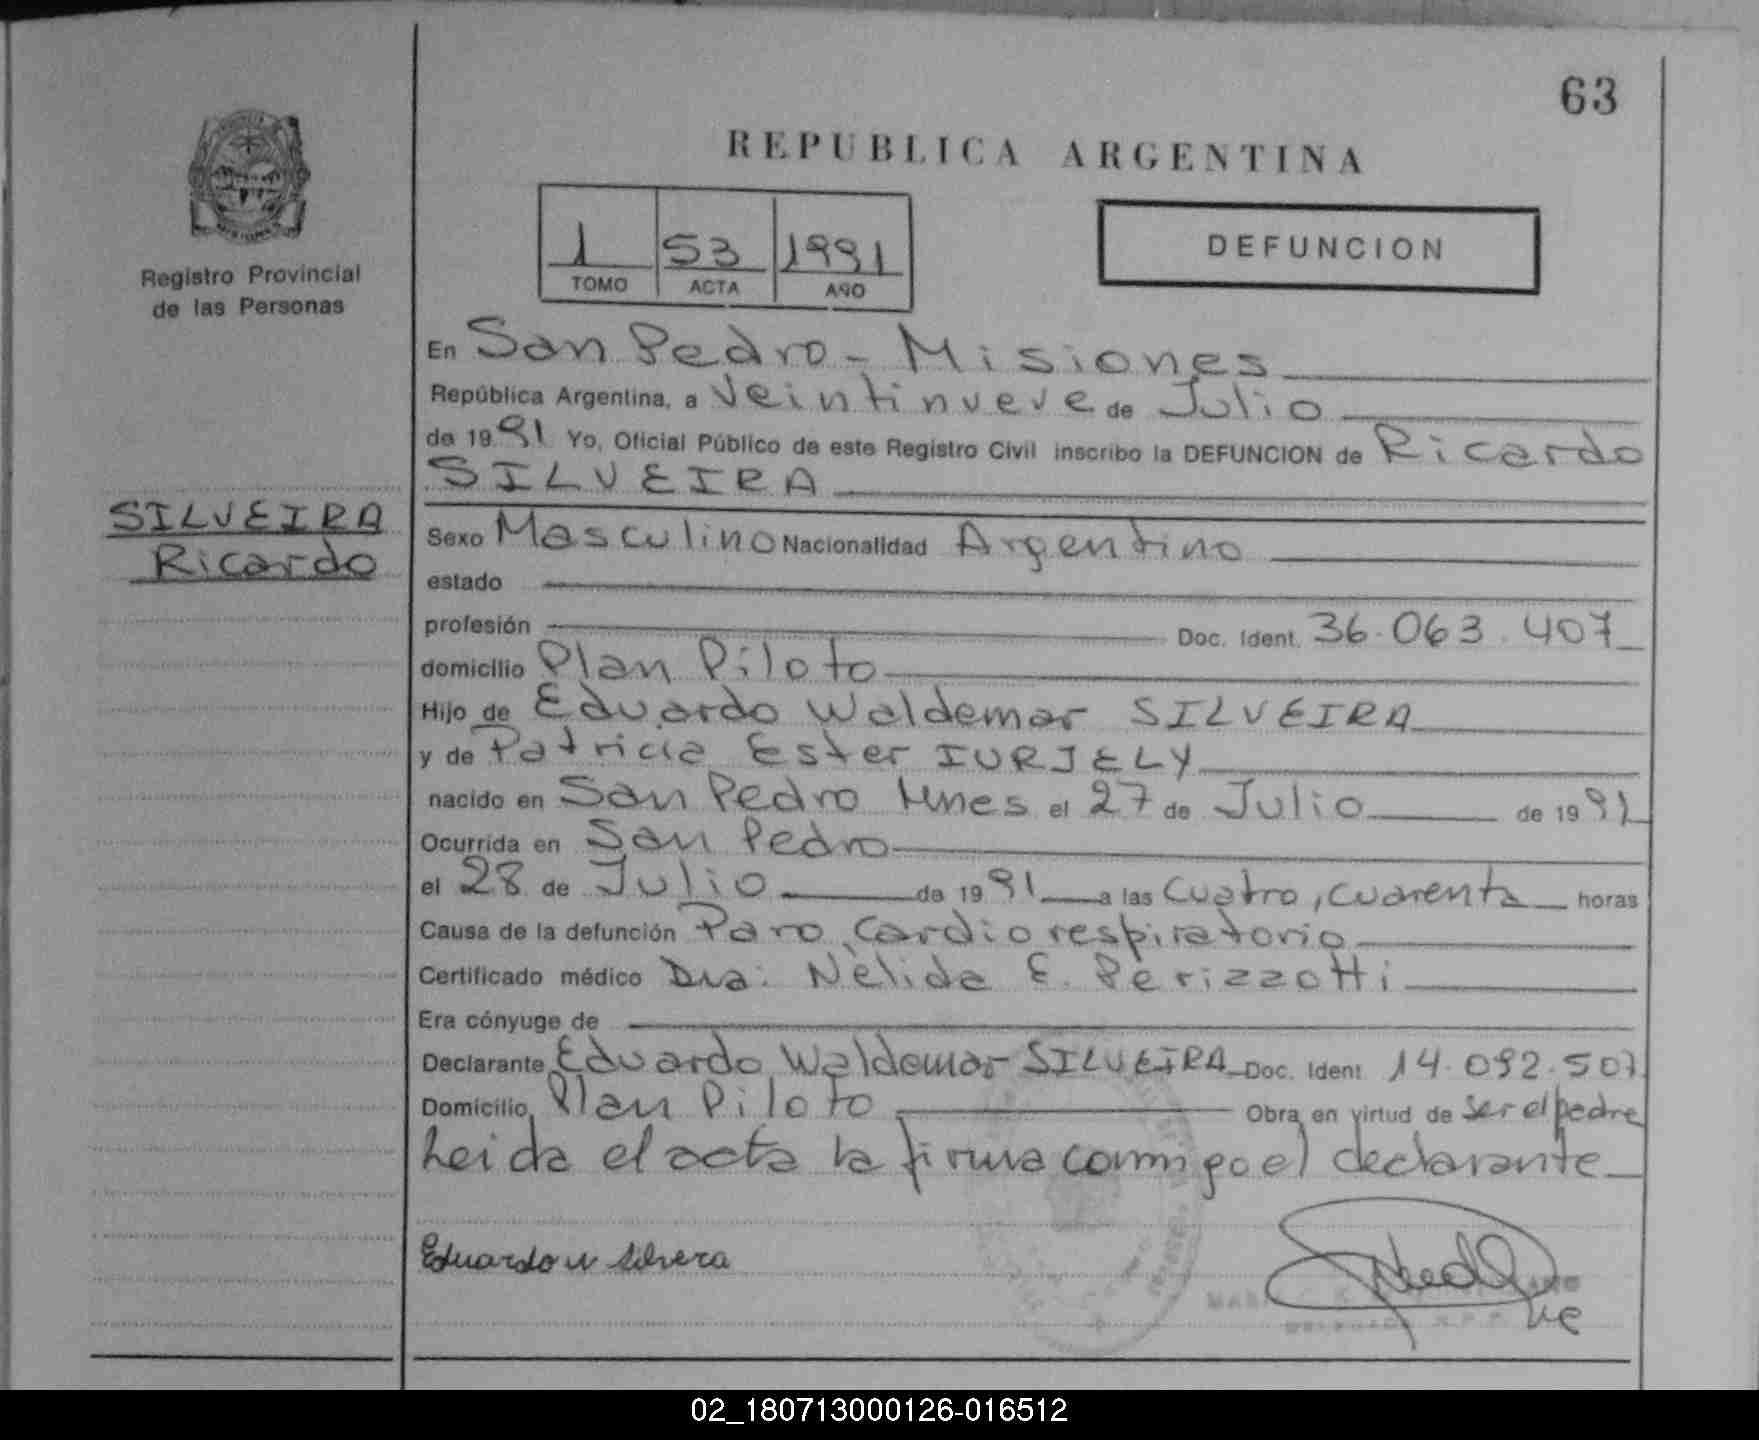 63
REPUBLICA ARGENTINA
Registro Provincial
de las Personas
1 53 1991
TOMO ACTA AÑO
DEFUNCION
En San Pedro - Misiones
República Argentina, a Veintinueve de Julio
de 1991 Yo, Oficial Público de este Registro Civil inscribo la DEFUNCION de Ricardo
SILVEIRA
SILVEIRA
Ricardo
Sexo Masculino Nacionalidad Argentino
estado
profesión Doc. Ident. 36.063.407
domicilio Plan Piloto
Hijo de Eduardo Waldemar SILVEIRA
y de Patricia Ester IURJELY
nacido en San Pedro Mnes el 27 de Julio de 1991
Ocurrida en San Pedro
el 28 de Julio de 1991 a las Cuatro, cuarenta horas
Causa de la defunción Paro Cardio respiratorio
Certificado médico Dra: Nélida E. Perizzotti
Era cónyuge de
Declarante Eduardo Waldemar SILVEIRA Doc. Ident 14.092.507
Domicilio Plan Piloto Obra en virtud de ser el padre
Leida el acta la firma conmigo el declarante
Eduardo W Silvera
02_180713000126-016512